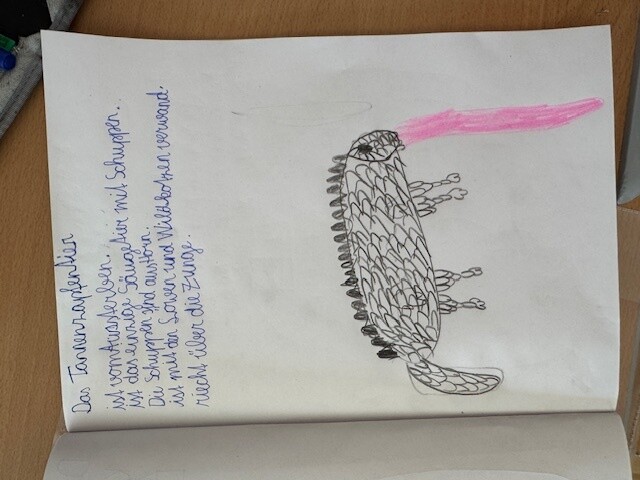 Das Tannenzapfentier
ist vom Aussterben.
ist das einzige Säugetier mit Schuppen.
Die Schuppen sind aus Horn.
ist mit den Löwen und Wildkatzen verwand.
riecht über die Zunge.